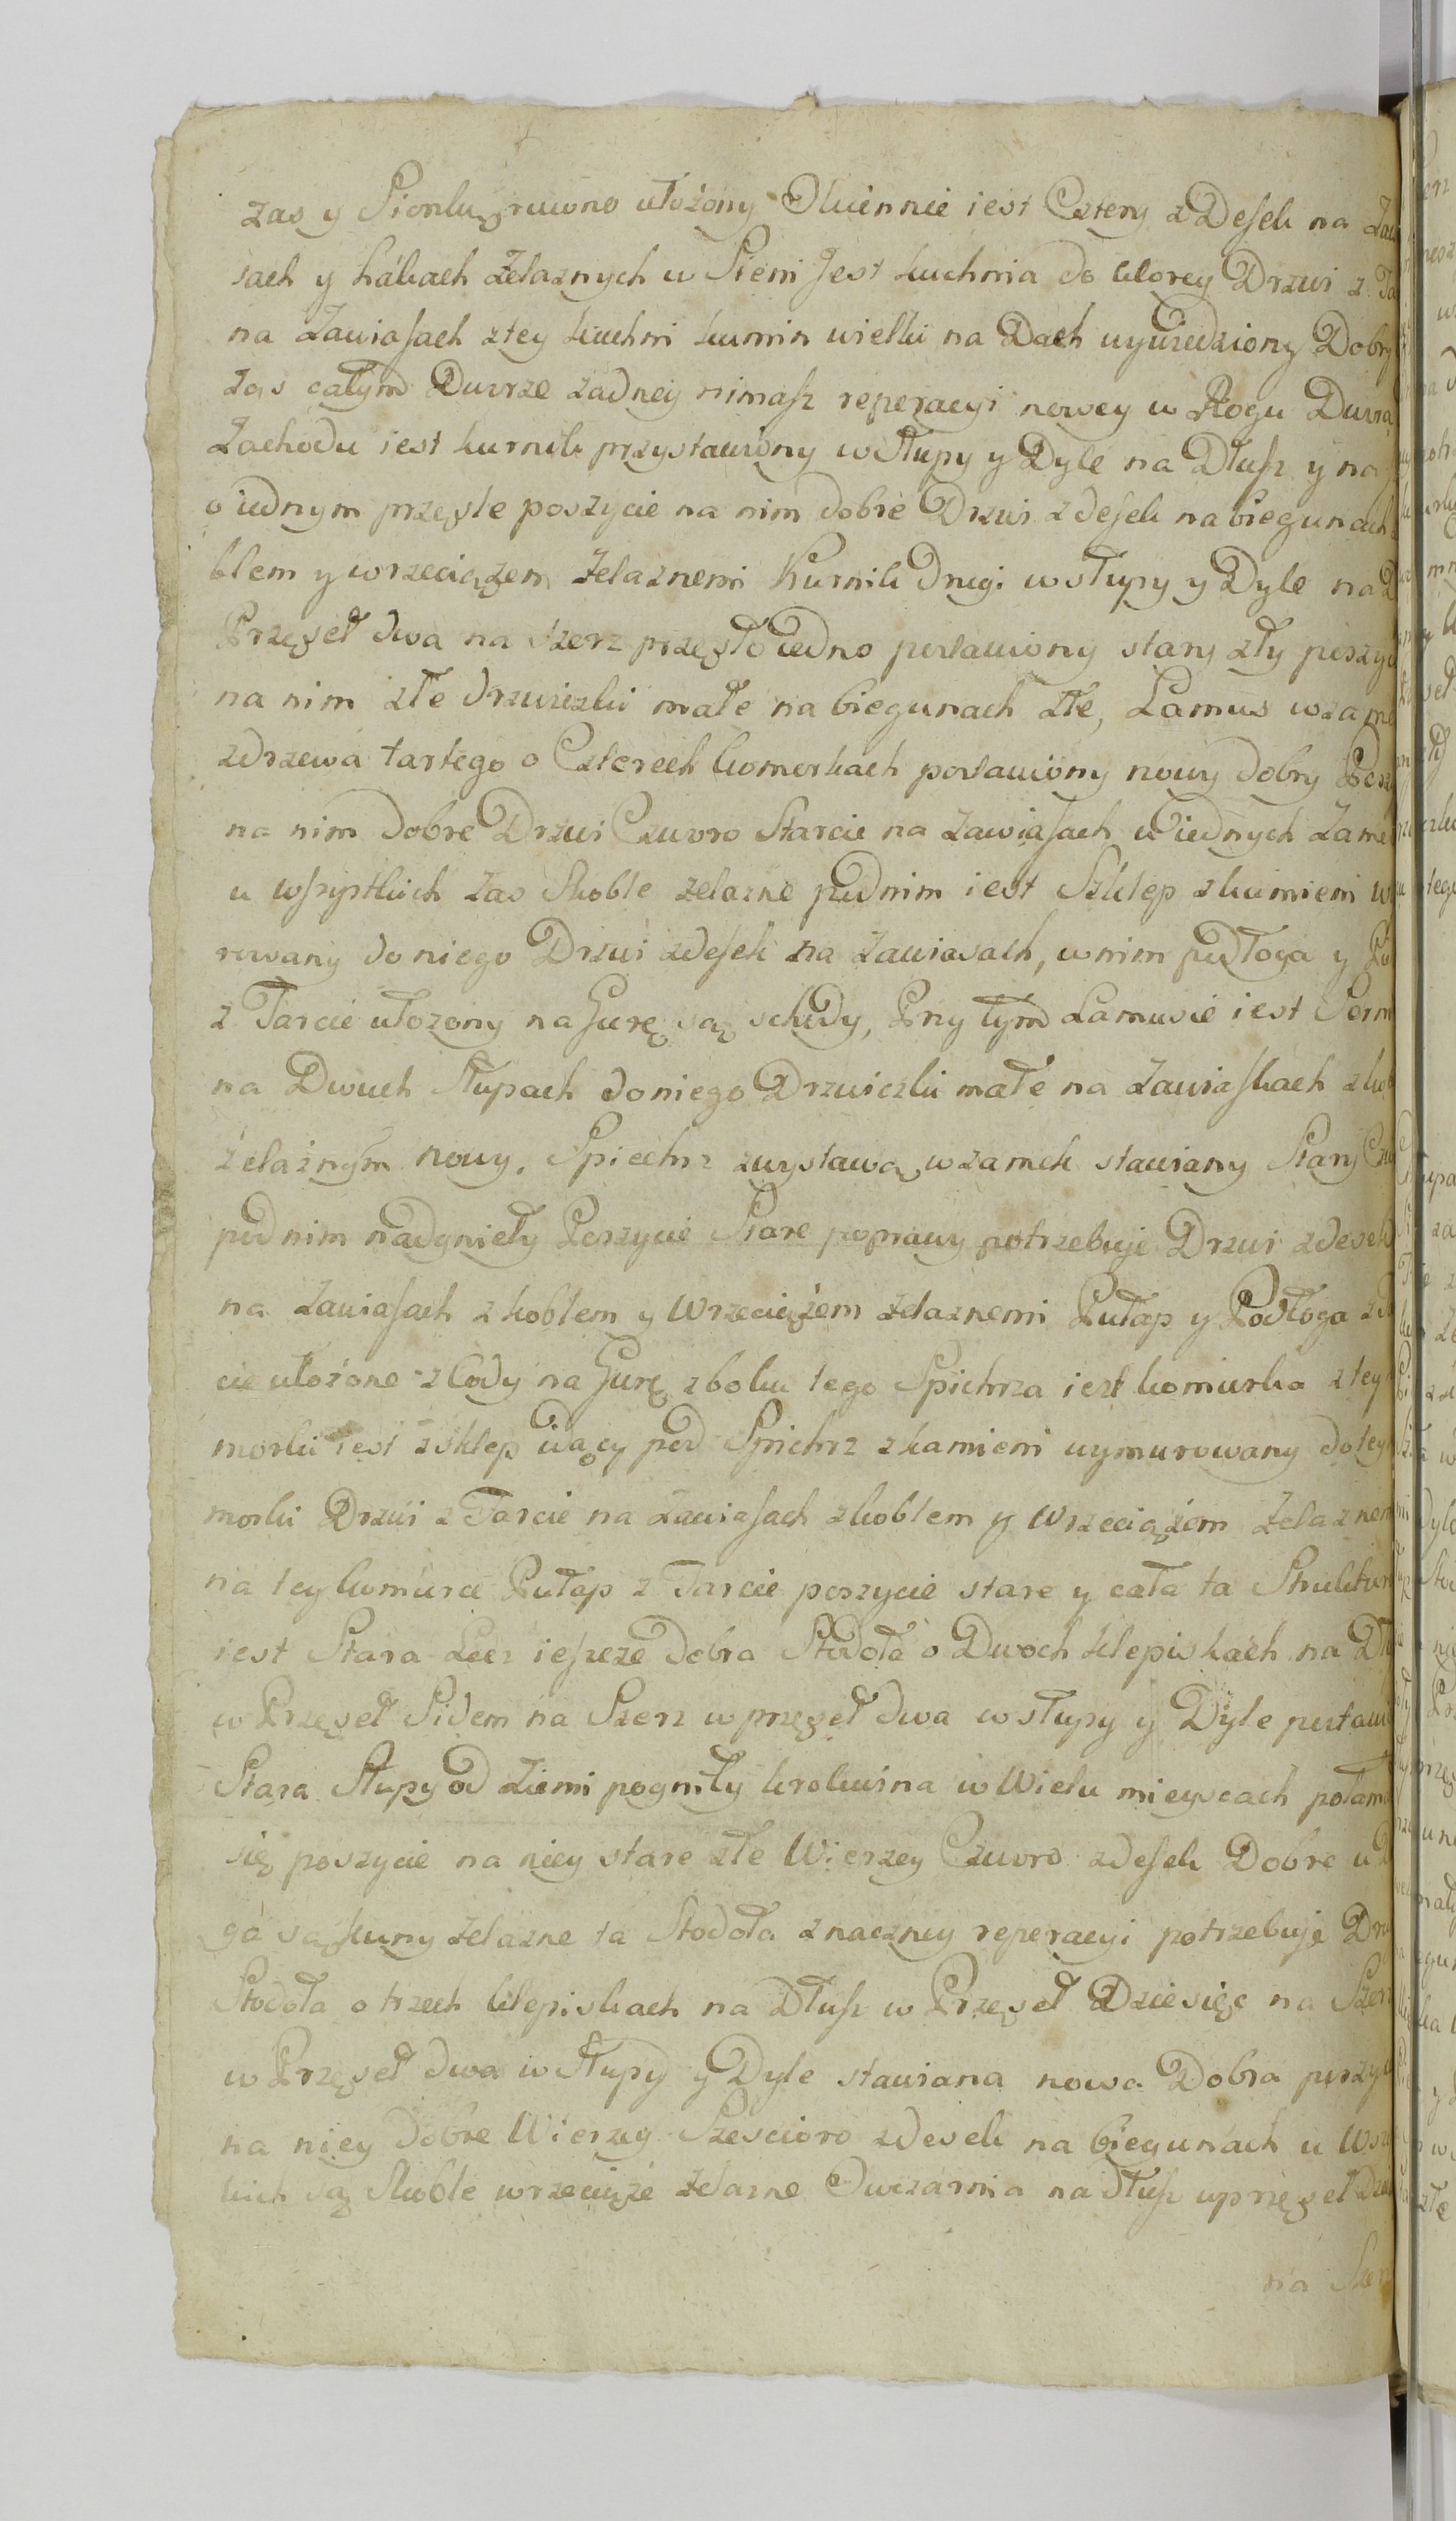 zas y Sionką rowno ułożony Okiennic iest Cztery z Desek na Zaw
sach y hákach żelaznych w Sieni Jest kuchnia do ktorey Drzwi z Ta
na Zawiasach z tey kuchni kumin wielki na Dach wywiedziony Dobry
zas całym Dworze zadney nimasz reperacyi nowey w Rogu Dwora
Zachodu iest kurnik przystawiony w Słupy y Dyle na Dłusz y na
o iednym przęśle poszycie na nim dobre Drzwi z desek na biegunach
blem y wrzeciązem żelaznemi Kurnik Drugi w słupy y Dyle na D
Przęseł dwa na szerz przęsło iedno postawiony stary zły poszyc
na nim złe drzwiczki małe na biegunach złe, Lamus w zame
z drzewa tartego o Czterech komorkach postawiony nowy dobry Posz
na nim dobre Drzwi Czworo Starcic na zawiasach u iednych Zame
u wszystkich zas Skoble zelazne pod nim iest Szklep z kamieni w
rowany do niego Drzwi z desek na zawiasach, w nim podłoga y Po
z Tarcic ułozony na Gurę są schody, Przy tym Lamusie iest Sern
na Dwuch Słupach do niego Drzwiczki małe na Zawiaskach z kob
żelaznym nowy. Spichrz z wystawą w zamek stawiany Stary
pod nim nadgnieły Poszycie Stare poprawy potrzebuje Drzwi z desek
na Zawiasach z koblem y Wrzeciążem żelaznemi Pułap y Podłoga z T
cic ułożone z chody na Gurę z boku tego Spichrza iest komurka z tey
morki iest z sklep idący pod Spichrz z kamieni wymurowany do tey
morki Drzwi z Tarcic na Zawiasach z koblem y Wrzeciążem żelaznem
na tey komurce Pułap z Tarcic poszycie stare y cała ta Struktur
iest Stara Lecz ieszcze Dobra Stodoła o Dwoch klepiskach na Dłu
w Przęseł Sidem na Szerz w przęseł dwa w słupy y Dyle postaw
Stara Słupy od Ziemi pogniły krokwina w Wielu mieyscach połama
się poszycie na niey stare złe Wierzey Czworo z desek Dobre u D
gá są kuny żelazne ta Stodoła znaczney reperacyi potrzebuje Dru
Stodoła o trzech klepiskach na Dłusz w Przęseł Dziesięc na Szerz
w Przęseł dwa w Słupy y Dyle stawiana nowa Dobra poszyc
na niey dobre Wierzey Szescioro z desek na biegunach u Wszy
kich są Skoble wrzeciąże żelazne Owczarnia na dłusz w przęseł Dzie
na Szer